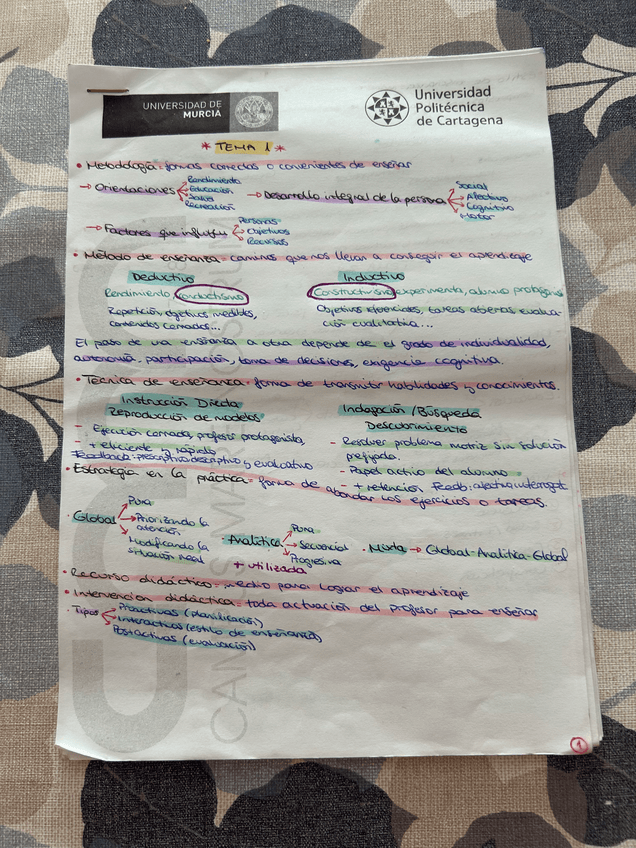 UNIVERSIDAD DE
MURCIA
Universidad
Politécnica
de Cartagena
* TEMA 1 *
• Metodología: formas correctas o convenientes de enseñar
→ Orientaciones
Rendimiento
Educación
Salud
Recreación
→ Desarrollo integral de la persona
Social
Afectivo
Cognitivo
Motor
→ Factores que influyen
Personas
Objetivos
Recursos
• Método de enseñanza: caminos que nos llevan a conseguir el aprendizaje
Deductivo
Rendimiento, conductismo
Repetición objetivos medibles,
contenidos cerrados...
Inductivo
Constructivismo experimenta, alumno protagonista
Objetivos, tareas abiertas evalua-
ción cualitativa...
El paso de una enseñanza a otra depende de el grado de individualidad,
autonomía, participación, toma de decisiones, exigencia cognitiva.
• Técnica de enseñanza: forma de transmitir habilidades y conocimientos.
Instrucción Directa
Reproducción de modelos
- Ejecución cerrada, profesor protagonista,
- + eficiente y rápido
Feedback: prescriptivo descriptivo y evaluativo
Indagación / Búsqueda
Descubrimiento
- Resolver problema motriz sin solución
prefijada.
- Papel activo del alumno
- + retención Feedb: afectivo interrogat.
• Estrategia en la práctica: forma de abordar los ejercicios o tareas.
· Global
Pura
Priorizando la
atención
Modificando la
situación real
· Analítica
Pura
Secuencial
Progresiva
+ utilizada
· Mixta → Global-Analítica-Global
• Recurso didáctico: medio para lograr el aprendizaje
• Intervención didáctica: toda actuación del profesor para enseñar
· Tipos
Proactivas (planificación)
Interactivas (estilo de enseñanza)
Postactivas (evaluación)
CAMPUS MARE
1